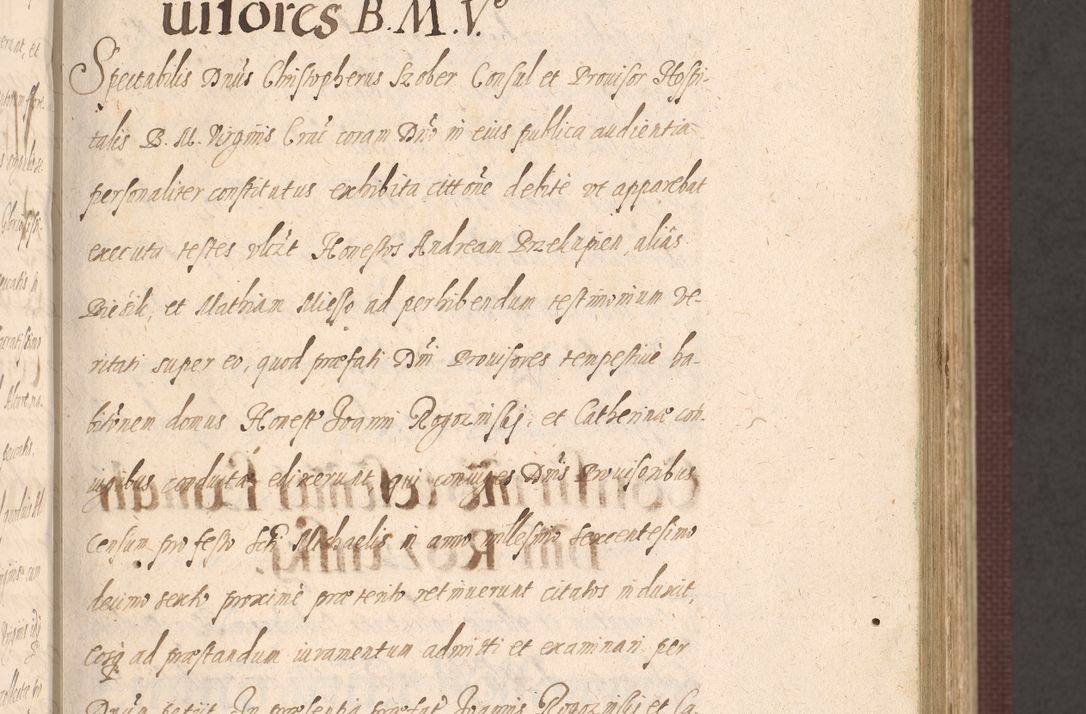 uisores B. M. V.
Spectabilis Dnus Christopherus Szober Consul et Prouisor Hospi-
talis B. M. Virginis Crac coram Dno in eius publica audientia
personaliter constitutus exhibita cittone debite vt apparebat
executa testes vlczt Honestos Andream Przekupien, alias
et Mathiam Miesso ad perhibendum testimonium ve-
ritati super eo, quod præfati Dni Prouisores tempestiue ha-
bitonem domus Honest Joanni Rogozinski, et Catherinæ con-
iugibus conducta elixerunt qui coniuges Dnis Prouisoribus
censum pro festo Sti Michaelis in anno millesimo sexcentesimo
decimo sexto proxime præterito retinuerunt citatos induxit,
cosq ad præstandum iuramentum admitti et examinari per
Dnum petiit. In præsentia præfat Joannis Rogozinski et Ca-